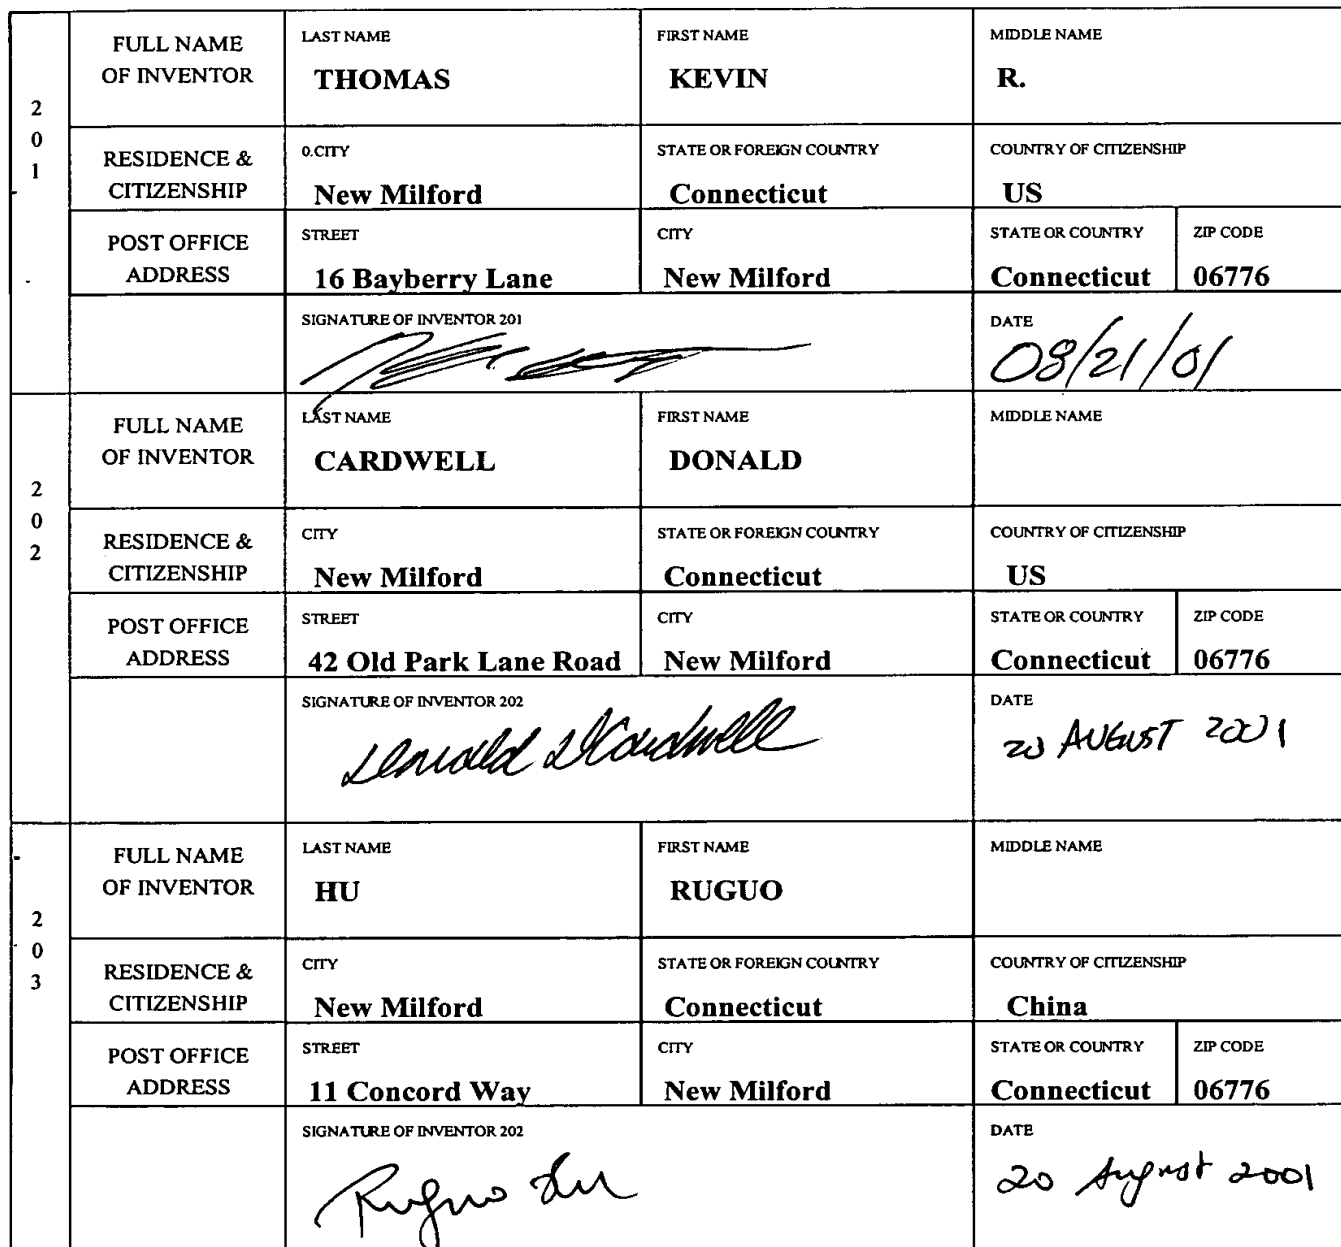 FULL NAME OF INVENTOR LAST NAME THOMAS FIRST NAME KEVIN MIDDLE NAME R.
201
RESIDENCE & CITIZENSHIP 0.CITY New Milford STATE OR FOREIGN COUNTRY Connecticut COUNTRY OF CITIZENSHIP US
POST OFFICE ADDRESS STREET 16 Bayberry Lane CITY New Milford STATE OR COUNTRY Connecticut ZIP CODE 06776
SIGNATURE OF INVENTOR 201 DATE 08/21/01
FULL NAME OF INVENTOR LAST NAME CARDWELL FIRST NAME DONALD MIDDLE NAME
202
RESIDENCE & CITIZENSHIP CITY New Milford STATE OR FOREIGN COUNTRY Connecticut COUNTRY OF CITIZENSHIP US
POST OFFICE ADDRESS STREET 42 Old Park Lane Road CITY New Milford STATE OR COUNTRY Connecticut ZIP CODE 06776
SIGNATURE OF INVENTOR 202 Donald Cardwell DATE 20 AUGUST 2001
FULL NAME OF INVENTOR LAST NAME HU FIRST NAME RUGUO MIDDLE NAME
203
RESIDENCE & CITIZENSHIP CITY New Milford STATE OR FOREIGN COUNTRY Connecticut COUNTRY OF CITIZENSHIP China
POST OFFICE ADDRESS STREET 11 Concord Way CITY New Milford STATE OR COUNTRY Connecticut ZIP CODE 06776
SIGNATURE OF INVENTOR 202 Ruguo Hu DATE 20 August 2001